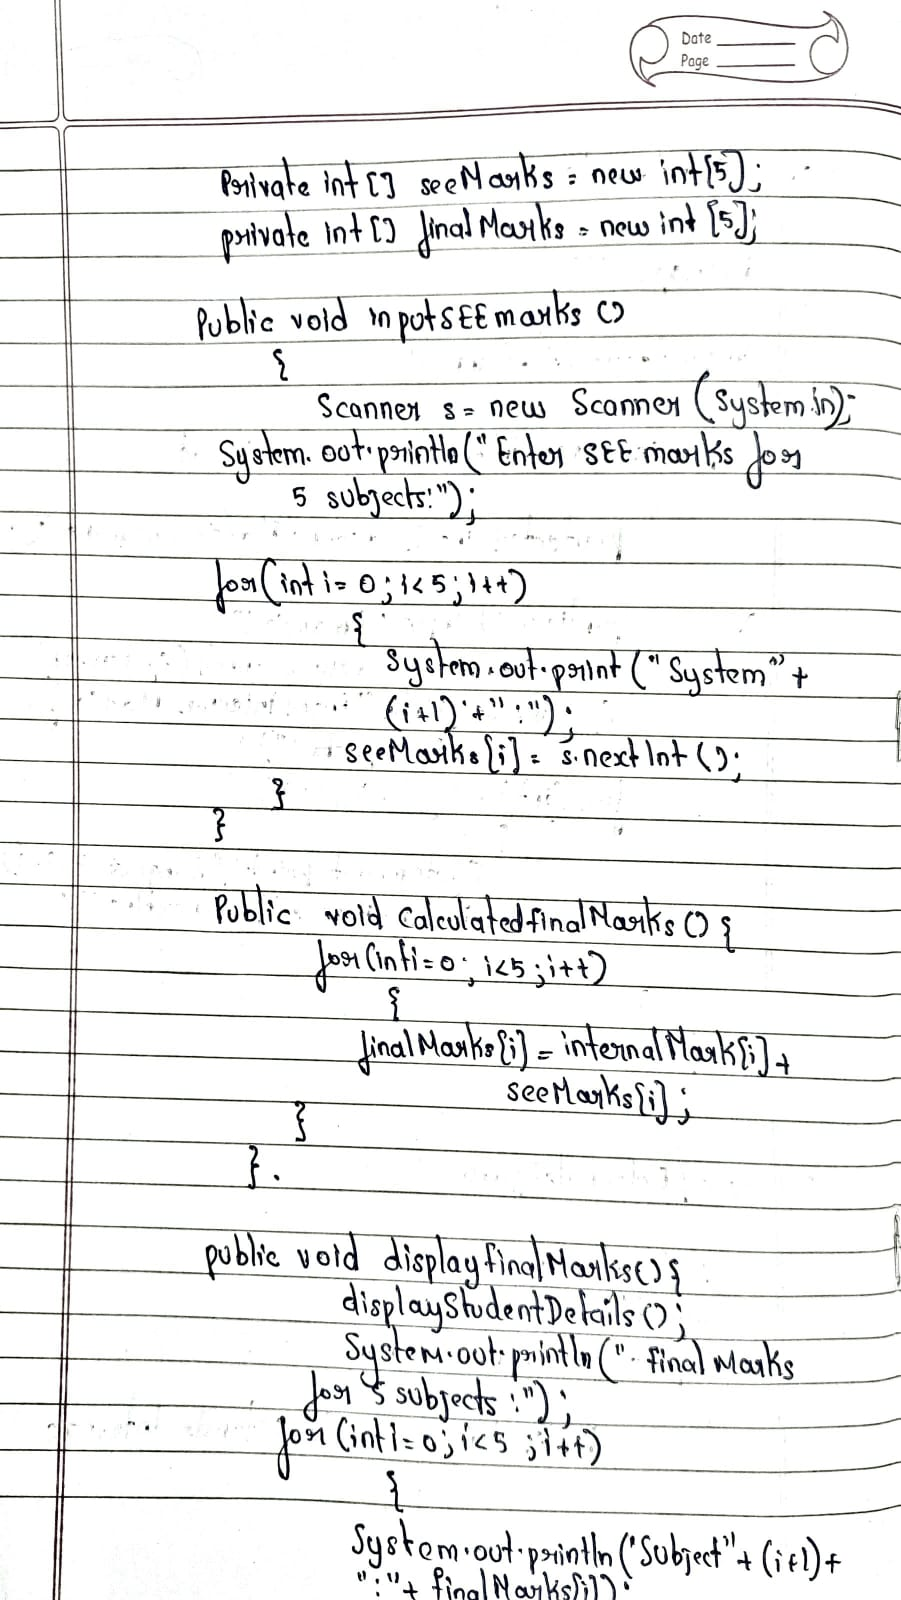 Date
Page
Private int [] seeMarks = new int[5];
private int [] finalMarks = new int [5];
Public void inputSEEmarks ()
{
Scanner s = new Scanner (System.in);
System.out.println("Enter SEE marks for
5 subjects:");
for(int i= 0; i<5; i++)
{
System.out.print ("System" +
(i+1) + ":");
seeMarks[i] = s.nextInt ();
}
}
Public void CalculatedfinalMarks () {
for(int i=0; i<5; i++)
{
finalMarks[i] = internalMark[i] +
seeMarks[i];
}
}.
public void displayfinalMarks() {
displayStudentDetails ();
System.out.println (". final Marks
for 5 subjects :");
for (int i= 0; i<5 ; i++)
{
System.out.println ("Subject"+ (i+1) +
":"+ finalMarks[i]);